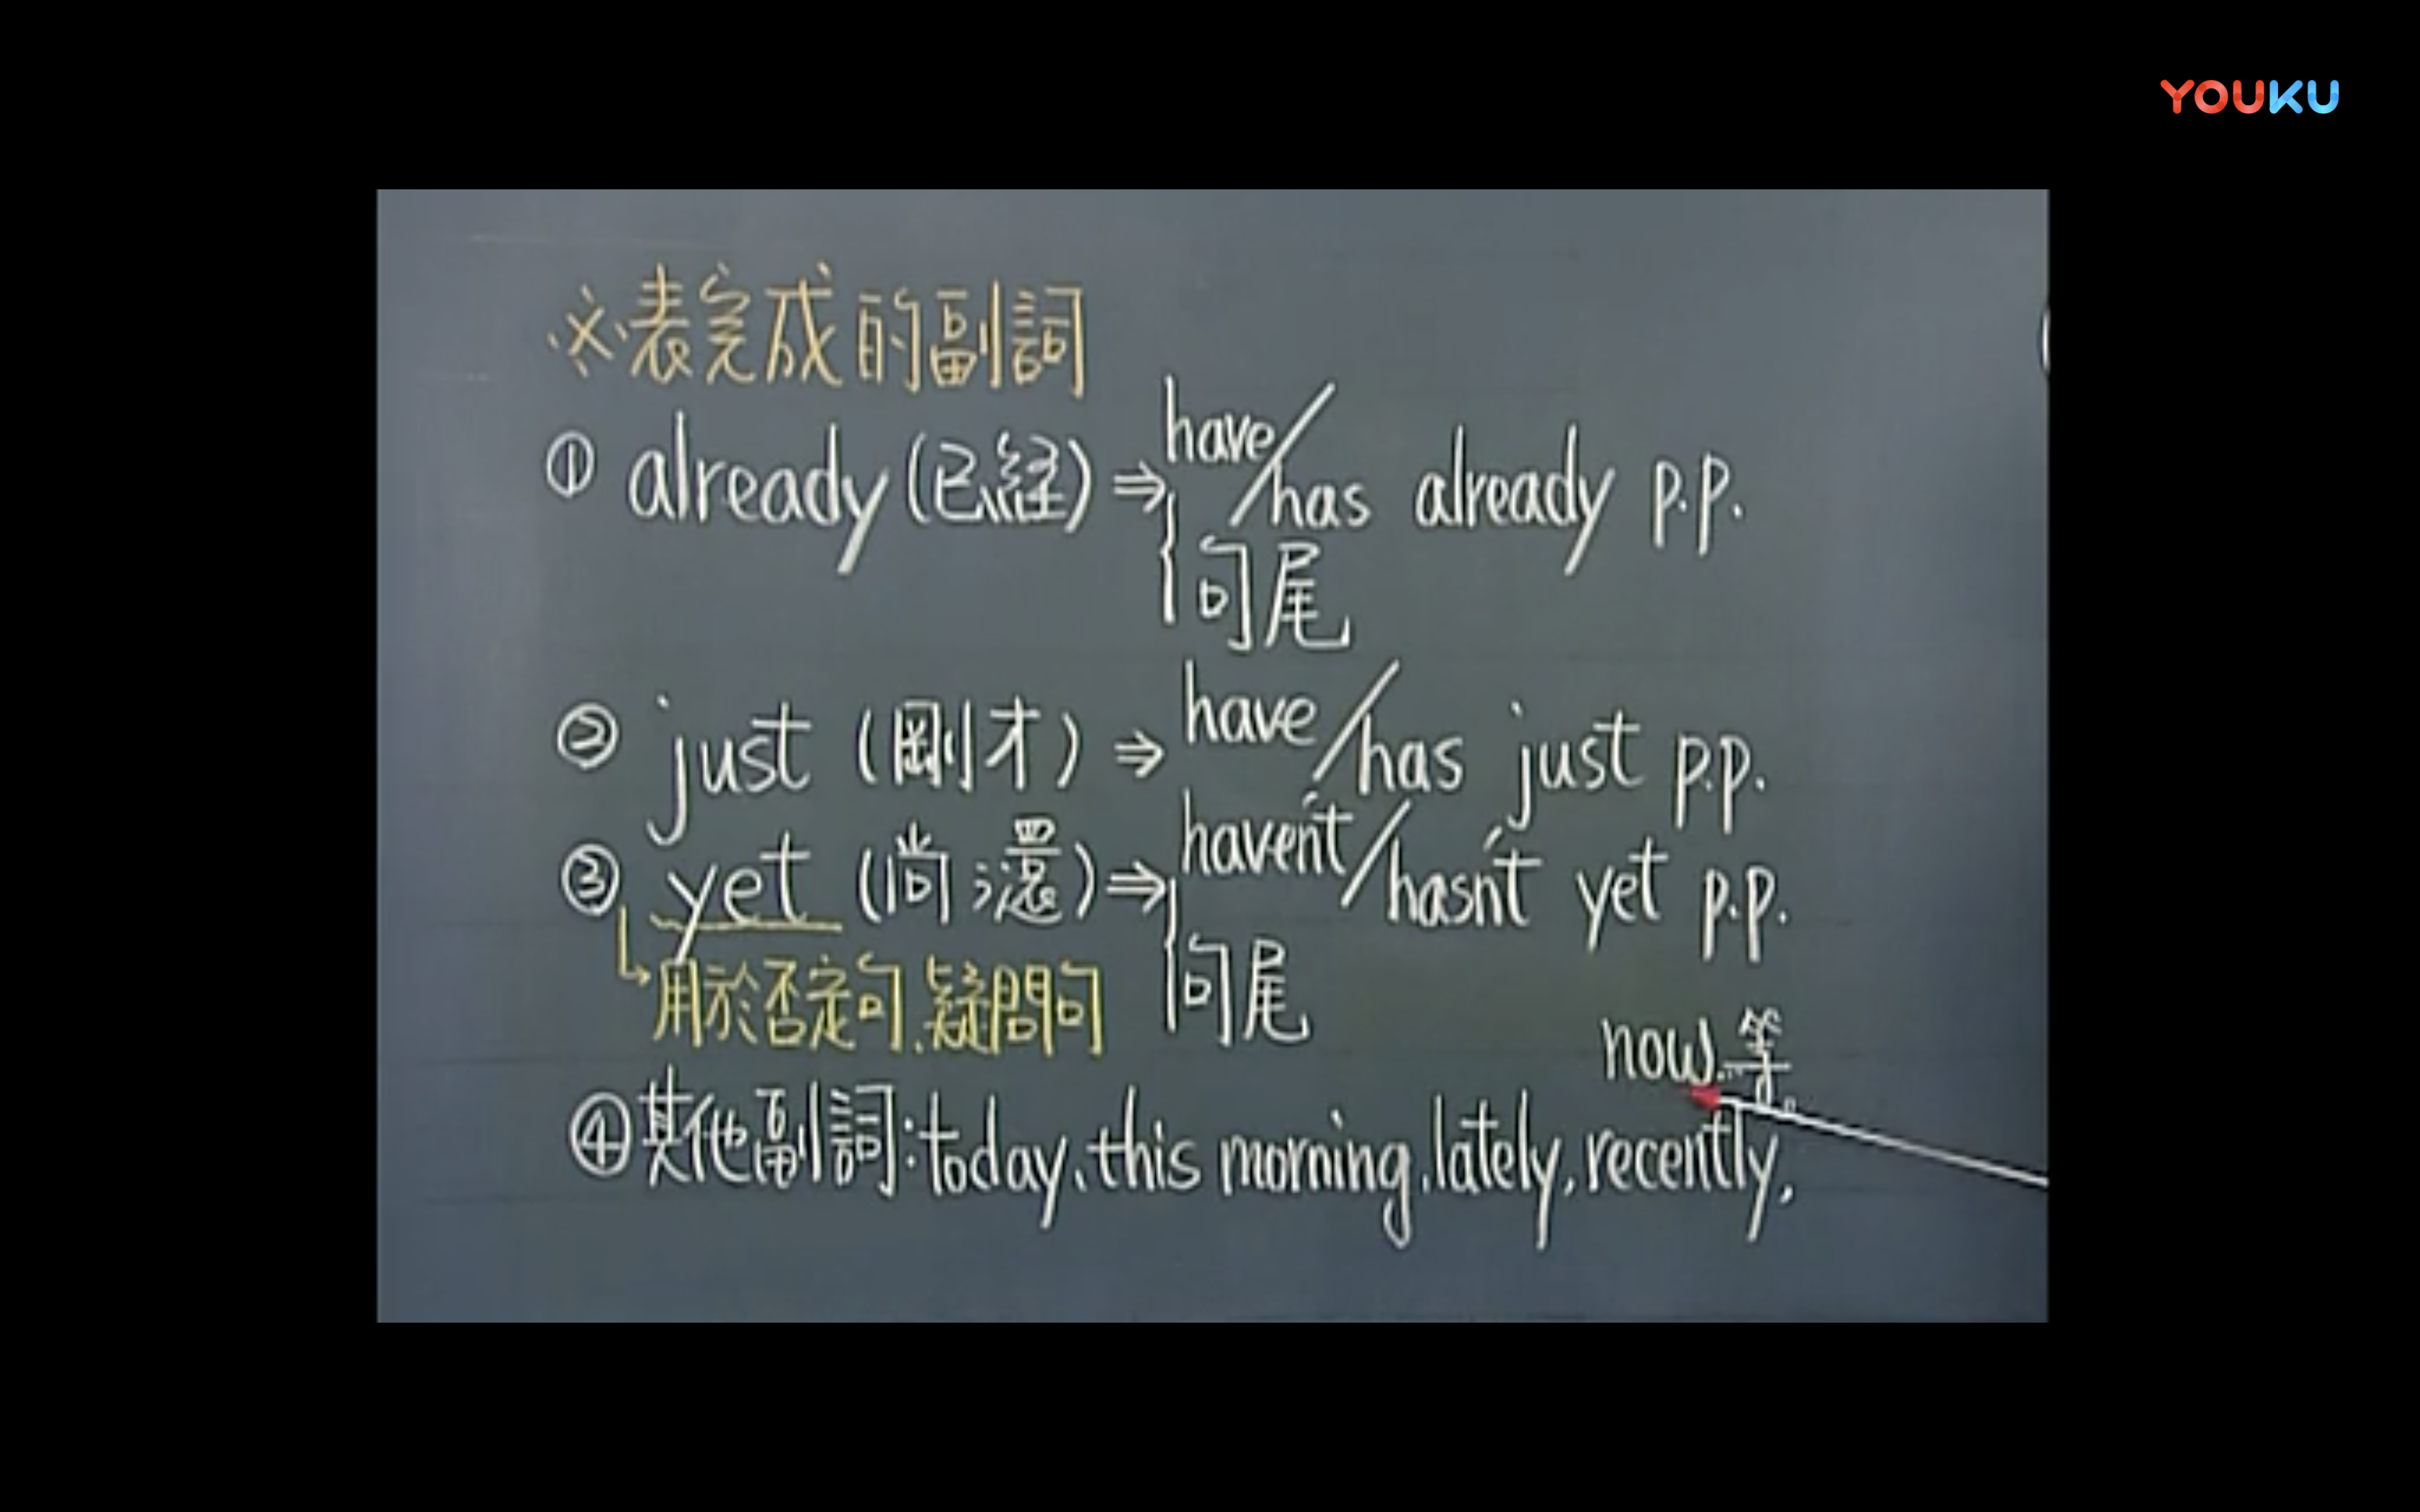 YOUKU
※表完成的副詞
① already (已経) ⇒ have/has already p.p.
句尾
② just (剛才) ⇒ have/has just p.p.
③ yet (尚還) ⇒ haven't/hasn't yet p.p.
用於否定句、疑問句
句尾
④其他副詞:today、this morning、lately、recently、
now…等。